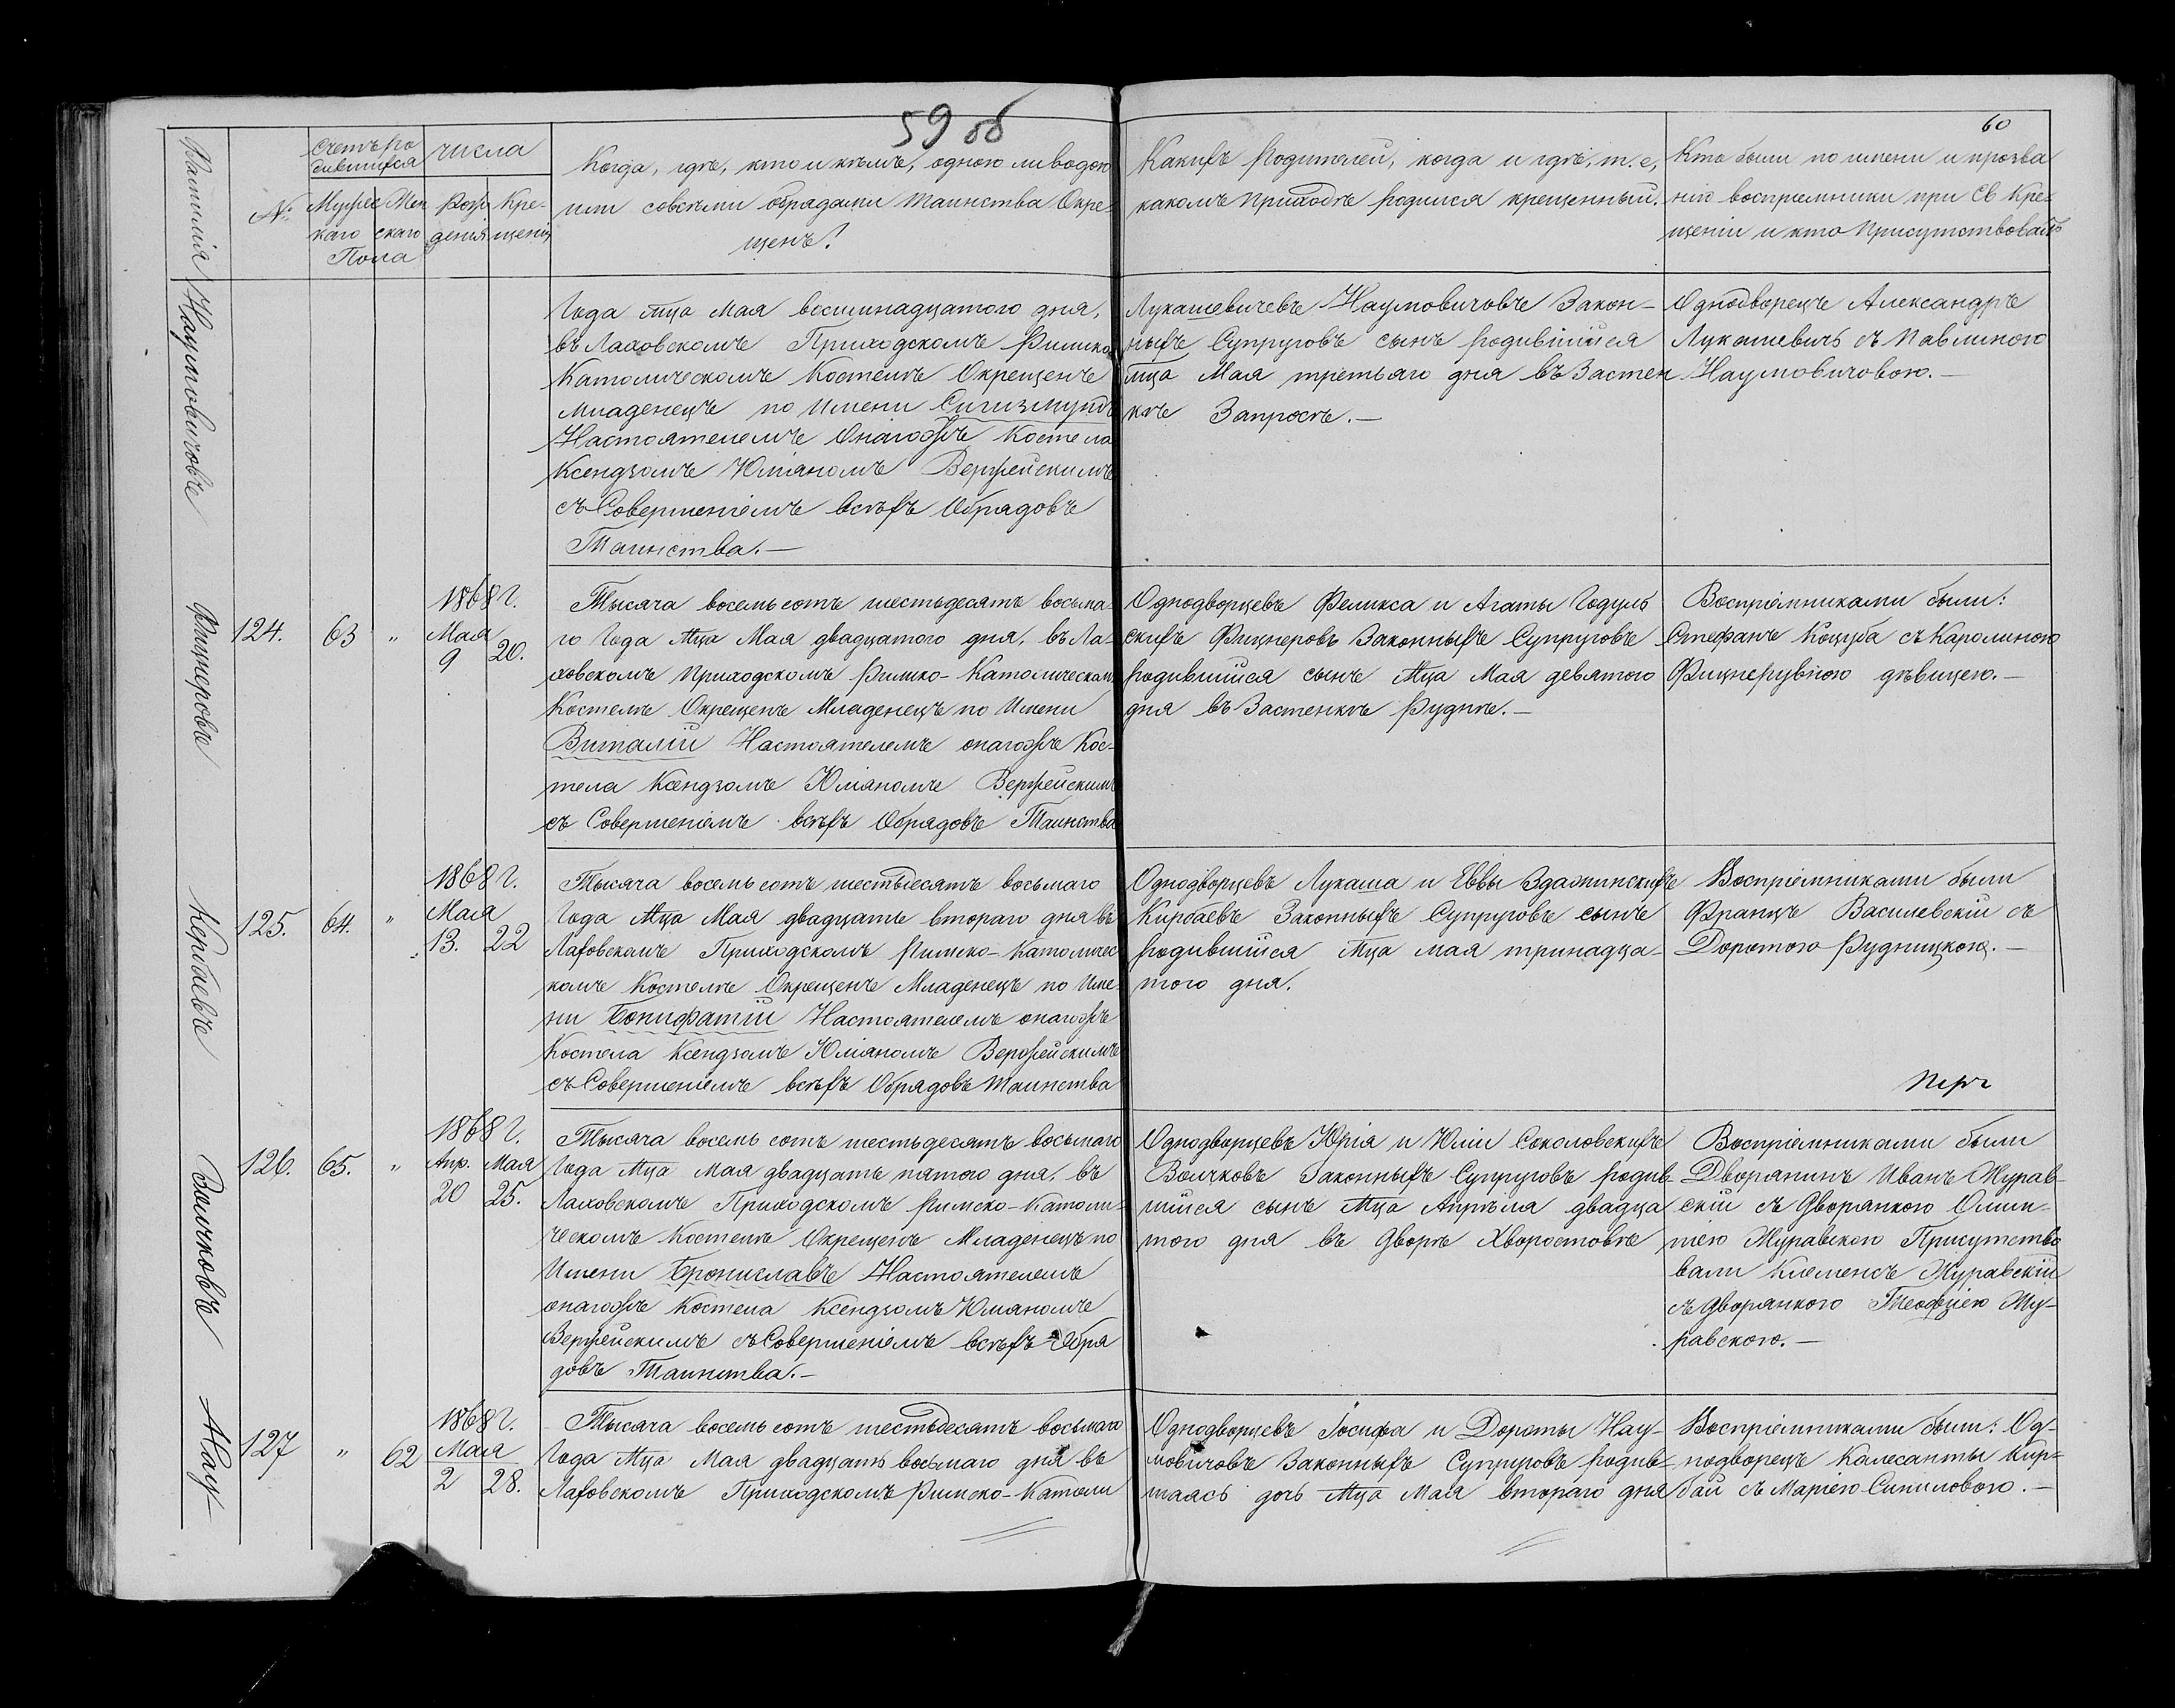 59 об
60
Фамилія
№
Счетъ ро
дившихся
Мужес
каго
Жен
скаго
Пола
числа
Рож
денія
Кре-
щенія
Когда, гдѣ, кто и кѣмъ, одною ли водою
или совсѣми обрядами Таинства Окре-
щенъ?
Какихъ Родителей, когда и гдѣ, т. е,
какомъ Приходѣ родился крещенный.
Кто были по имени и прозва
нію воспріемники при Св Кре-
щеніи и кто Присутствовалъ
Наумовичовъ
Года Мца Мая восемнадцатого дня,
въ Лаховскомъ Приходскомъ Римско
Католическомъ Костелѣ Окрещенъ
Младенецъ по Имени Сигизмундъ
Настоятелемъ Онагожъ Костела
Ксендзомъ Юліаномъ Вержейскимъ
съ Совершеніемъ всѣхъ Обрядовъ
Таинства.—
Лукашевичевъ Наумовичовъ Закон-
ныхъ Супруговъ сынъ родившійся
Мца Мая третьяго дня въ Застен
кѣ Запросѣ.—
Однодворецъ Александръ
Лукашевичъ съ Павлиною
Наумовичовою.—
Фицнеровъ
124.
63
"
1868 г.
Мая
9
20.
Тысяча восемьсотъ шестьдесятъ восьма-
го Года Мца Мая двадцатого дня, въ Ла-
ховскомъ Приходскомъ Римско-Католическомъ
Костелѣ Окрещенъ Младенецъ по Имени
Виталій Настоятелемъ онагожъ Кос-
тела Ксендзомъ Юліаномъ Вержейскимъ
съ Совершеніемъ всѣхъ Обрядовъ Таинства
Однодворцевъ Феликса и Агаты Годуль
скихъ Фицнеровъ Законныхъ Супруговъ
родившійся сынъ Мца Мая девятого
дня въ Застенкѣ Руднѣ.—
Воспріемниками были:
Стефанъ Коцуба съ Каролиною
Фицнерувною дѣвицею.—
Кербаевъ
125.
64.
"
1868 г.
Мая
13.
22
Тысяча восемьсотъ шестьдесятъ восьмаго
Года Мца Мая двадцать втораго дня въ
Лаховскомъ Приходскомъ Римско-Католичес
комъ Костелѣ Окрещенъ Младенецъ по Име-
ни Бонифатій Настоятелемъ онагожъ
Костела Ксендзомъ Юліаномъ Вержейскимъ
съ Совершеніемъ всѣхъ Обрядовъ Таинства
Однодворцевъ Лукаша и Еввы Здажинскихъ
Кирбаевъ Законныхъ Супруговъ сынъ
родившійся Мца мая тринадца-
того дня.
Воспріемниками были
Францъ Василевскій съ
Доротою Рудницкою.—
Волчковъ
126.
65.
"
1868 г.
Апр.
20
Мая
25.
Тысяча восемь сотъ шестьдесятъ восьмаго
Года Мца Мая двадцать пятого дня, въ
Лаховскомъ Приходскомъ Римско-Католи-
ческомъ Костелѣ Окрещенъ Младенецъ по
Имени Брониславъ Настоятелемъ
онагожъ Костела Ксендзомъ Юліаномъ
Вержейскимъ съ Совершеніемъ всѣхъ Обря
довъ Таинства.—
Однодворцевъ Юрія и Юліи Соколовскихъ
Волчковъ Законныхъ Супруговъ родив-
шійся сынъ Мца Апрѣля двадца
того дня въ Дворѣ Хворостовѣ
Воспріемниками были
Дворянинъ Иванъ Журав-
скій съ Дворянкою Олим-
піею Журавскою Присутство
вали Клеменсъ Журавскій
съ Дворянкою Теофзіею Жу-
равскою.—
Нау-
127
"
62
1868 г.
Мая
2
28.
Тысяча восемьсотъ шестьдесятъ восьмаго
Года Мца Мая двадцать восьмаго дня въ
Лаховскомъ Приходскомъ Римско-Католи
Однодворцевъ Іосифа и Дороты Нау-
мовичовъ Законныхъ Супруговъ родив-
шаясь дочь Мца Мая втораго дня
Воспріемниками были: Од-
нодворецъ Калесанты Кир-
бай съ Маріею Сипиловою.—